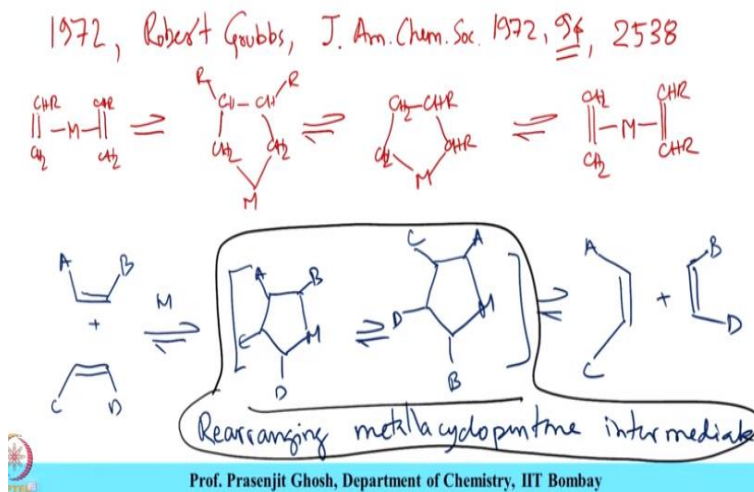 1972, Robert Grubbs, J. Am. Chem. Soc. 1972, 94, 2538
CHR CHR R R CH2-CHR CH2 CHR
|| -M- || ⇌ CH-CH ⇌ CH2 CHR ⇌ || -M- ||
CH2 CH2 CH2 CH2 M CH2 CHR
M
A B C A A B
+ M ⇌ [ A B C M D ⇌ D M B ] ⇌ + 
C D C D
Rearranging metallacyclopentane intermediate
Prof. Prasenjit Ghosh, Department of Chemistry, IIT Bombay